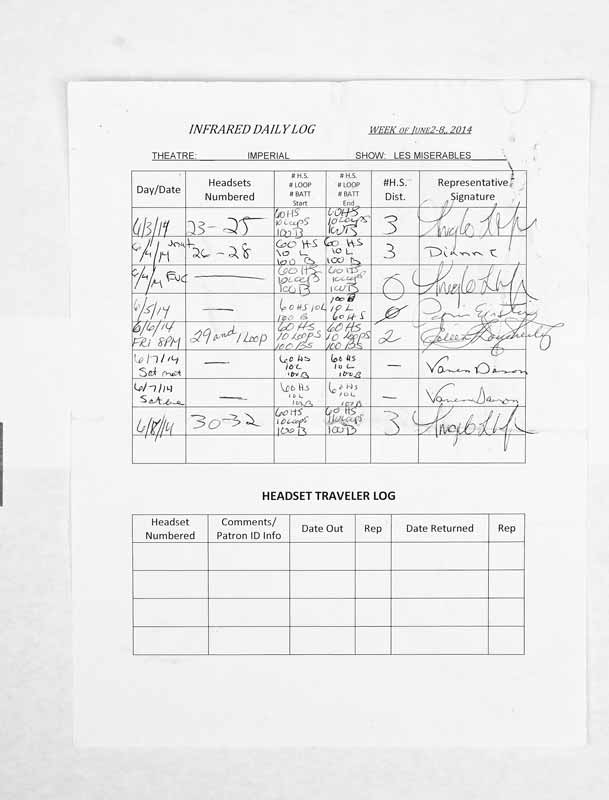 INFRARED DAILY LOG WEEK OF JUNE2-8, 2014
THEATRE: IMPERIAL SHOW: LES MISERABLES
Day/Date Headsets Numbered # H.S. # LOOP # BATT Start # H.S. # LOOP # BATT End #H.S. Dist. Representative Signature
6/3/14 23-25 60HS 10Loops 100B 60HS 10Loops 100B 3
6/4/14 mat 26-28 60 HS 10 L 100 B 60 HS 10 L 100 B 3 Dianne
6/4/14 EVE — 60HS 10Loops 100B 60HS 10Loops 100B 0
6/5/14 — 60HS 10L 100 B 100 B 10 L 60 HS 0
6/6/14 FRI 8PM 29 and 1 Loop 60 HS 10 LOOPS 100 BS 60 HS 10 LOOPS 100 BS 2 Eileen Dougherty
6/7/14 Sat mat — 60 HS 10L 100B 60 HS 10L 100B —
6/7/14 Sat eve — 60 HS 10L 100B 60 HS 10L 100B —
6/8/14 30-32 60HS 10Loops 100B 60 HS 10Loops 100B 3
HEADSET TRAVELER LOG
Headset Numbered Comments/ Patron ID Info Date Out Rep Date Returned Rep